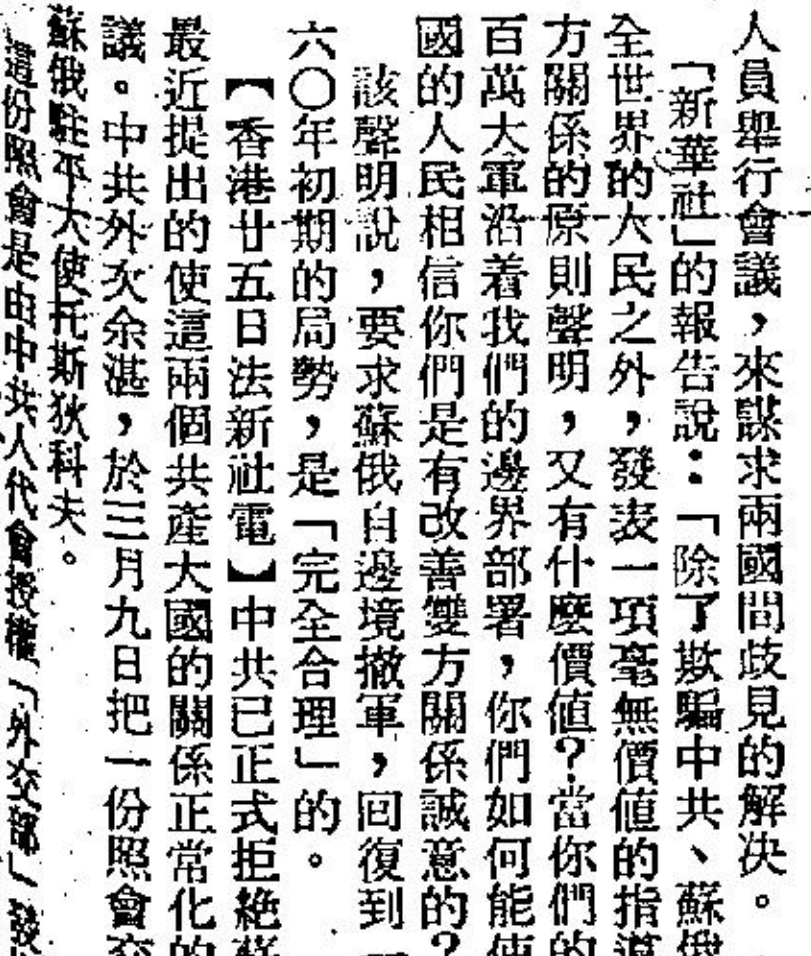 人員舉行會議，來謀求兩國間歧見的解決。
「新華社」的報告說：「除了欺騙中共、蘇俄
全世界的人民之外，發表一項毫無價值的指導
方關係的原則聲明，又有什麼價值？當你們的
百萬大軍沿着我們的邊界部署，你們如何能使
國的人民相信你們是有改善雙方關係誠意的？
該聲明說，要求蘇俄自邊境撤軍，回復到
六〇年初期的局勢，是「完全合理」的。
【香港廿五日法新社電】中共已正式拒絕蘇
最近提出的使這兩個共產大國的關係正常化的
議。中共外次余湛，於三月九日把一份照會交
蘇俄駐平大使托斯狄科夫。
這份照會是由中共人代會授權「外交部」發